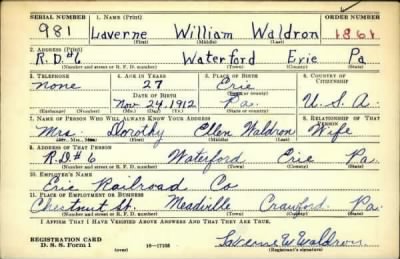 SERIAL NUMBER 1. NAME (Print) ORDER NUMBER
981 Laverne William Waldron 1861
(First) (Middle) (Last)
2. ADDRESS (Print)
R.D.#6 Waterford Erie Pa
(Number and street or R. F. D. number) (Town) (County) (State)
3. TELEPHONE 4. AGE IN YEARS 5. PLACE OF BIRTH 6. COUNTRY OF CITIZENSHIP
none 27 Erie
DATE OF BIRTH (Town or county)
Nov 24, 1912 Pa. U.S.A.
(Exchange) (Number) (Mo.) (Day) (Yr.) (State or country)
7. NAME OF PERSON WHO WILL ALWAYS KNOW YOUR ADDRESS 8. RELATIONSHIP OF THAT PERSON
Mrs. Dorothy Ellen Waldron Wife
(Mr., Mrs., Miss) (First) (Middle) (Last)
9. ADDRESS OF THAT PERSON
R.D.#6 Waterford Erie Pa
(Number and street or R. F. D. number) (Town) (County) (State)
10. EMPLOYER'S NAME
Erie Railroad Co
11. PLACE OF EMPLOYMENT OR BUSINESS
Chestnut St. Meadville Crawford Pa.
(Number and street or R. F. D. number) (Town) (County) (State)
I AFFIRM THAT I HAVE VERIFIED ABOVE ANSWERS AND THAT THEY ARE TRUE.
REGISTRATION CARD
D. S. S. Form 1 (over) 16-17105 Laverne W. Waldron
(Registrant's signature)